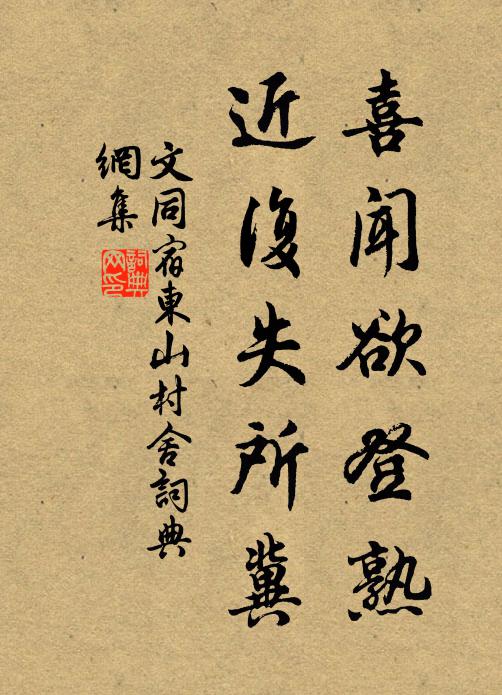 喜聞欲登熟
近復失所冀
文同宿東山村舍詞典
網集
詞典
网印